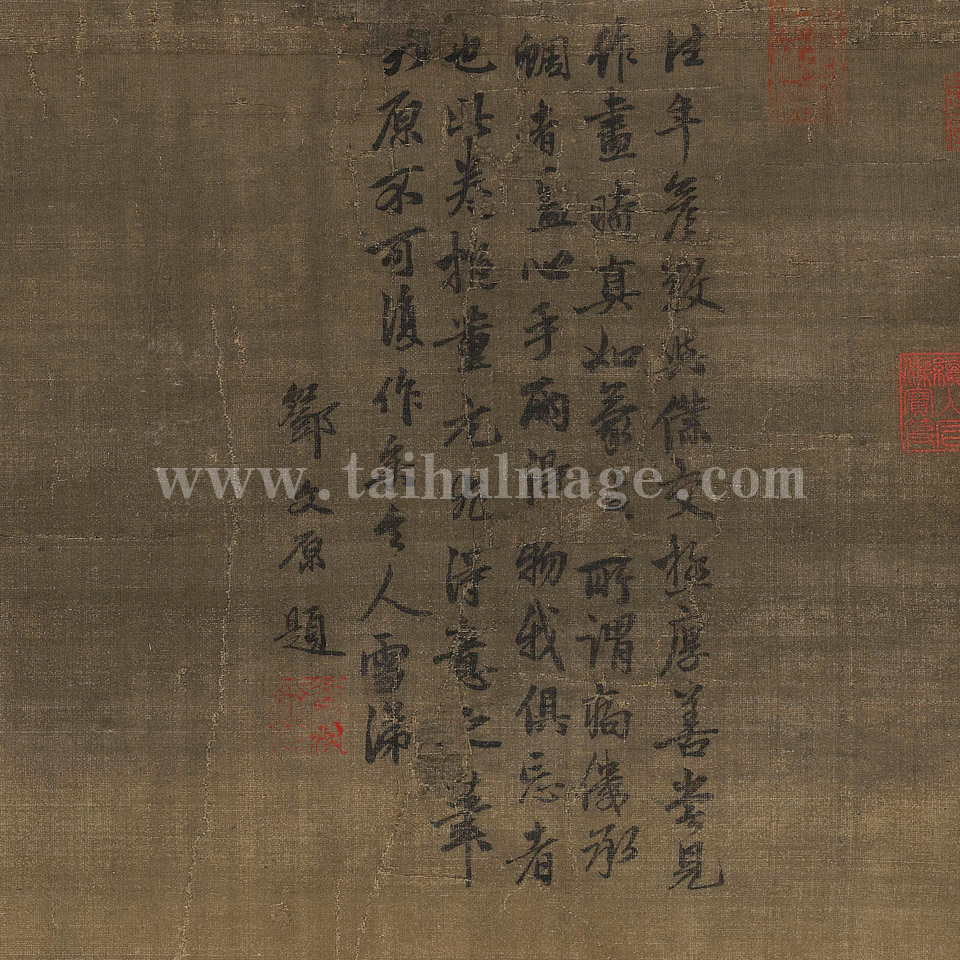 往年彥敬與僕交極厚善嘗見
作畫時真如蒙莊所謂痀僂承
蜩者蓋心手兩物我俱忘者
也此卷擬董元尤得意之筆
九原不可復作為主人雪涕
鄧文原題
www.taihuImage.com